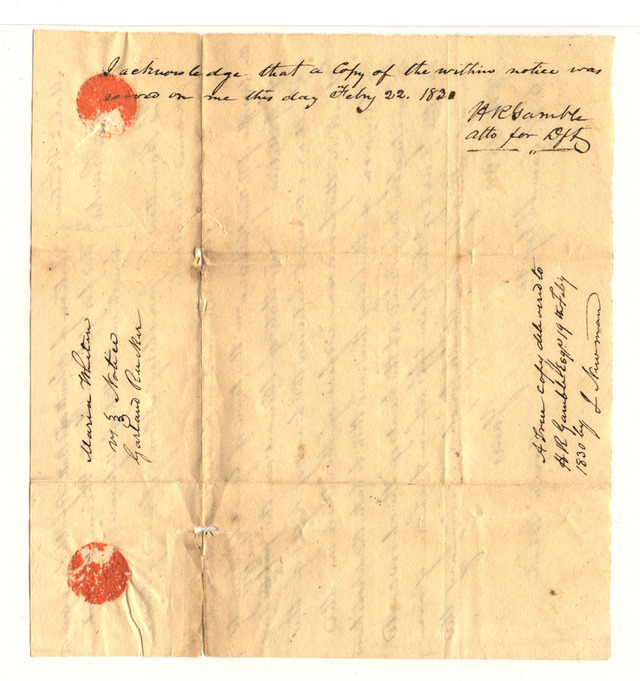 I acknowledge that a Copy of the within notice was
served on me this day Feby 22. 1830
H R Gamble
atto for Dft
Maria Whiten
vs } Notice
Garland Rucker
A True copy delivered to
H R Gamble Esqr 19th Feby
1830 by J Newman